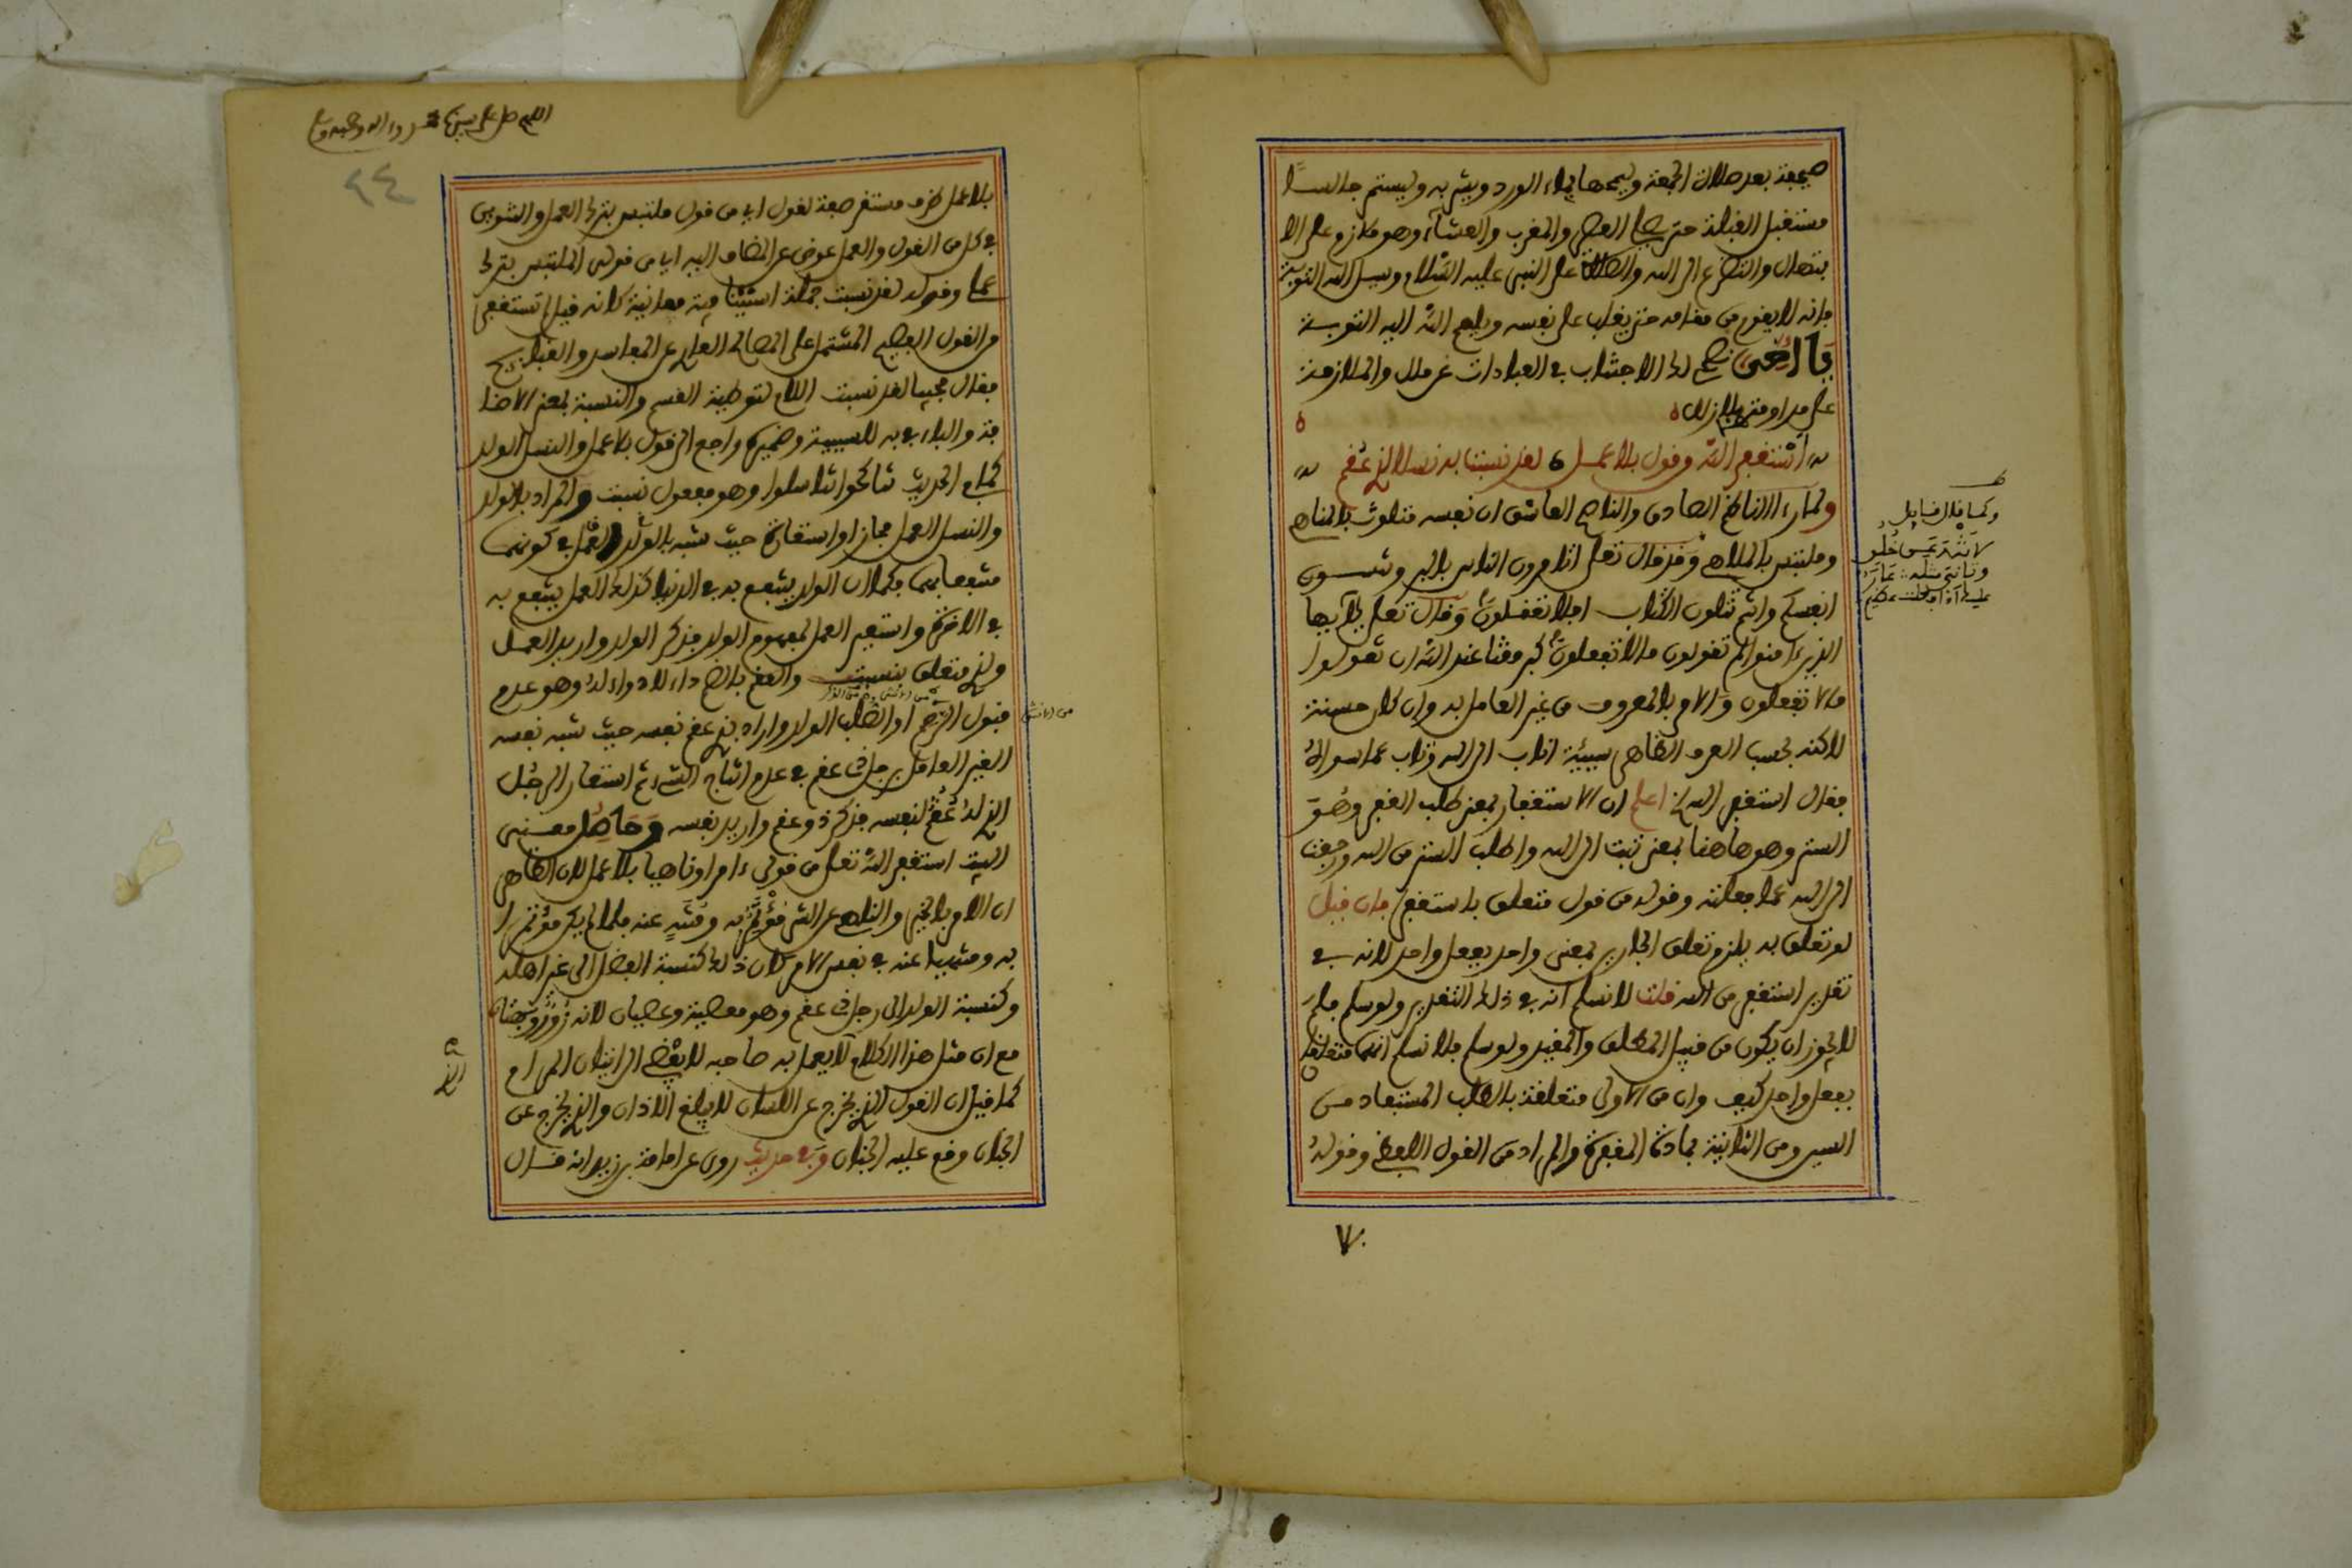 صحيفة بعد صلاة الجمعة ويمحها بماء الورد ويشربه ويستمر جالسا
مستقبل القبلة حتى يصلي العصر والمغرب والعشاء وهو ملازم على الا
بتهال والتضرع الى الله والصلاة على النبي عليه السلام ويسئل الله التوبة
فانه لا يقوم من مقامه حتى يغلب على نفسه ويلهم الله اليه التوبة
يا اخى لك الاجتناب في العبادات غير ملل والملازمة
على مداومته
استغفر الله من قول بلا عمل لقد نسبت به نسلا لذي عقم
ولما رءا الناظم الصادق والناصح العاشق ان نفسه متلوث بالمناهي
ومتلبس بالملاهي وقد قال تعلى اتامرون الناس بالبر وتنسون
انفسكم وانتم تتلون الكتاب افلا تعقلون وقال تعلى يايها
الذين ءامنوا لم تقولون ما لا تفعلون كبر مقتا عند الله ان تقولوا
ما لا تفعلون والامر بالمعروف من غير العامل به وان كان حسنة
لاكنه بحسب العرف الظاهر سيئة اناب الى الله وتاب عما سواه
فقال استغفر الله اعلم ان الاستغفار بمعنى طلب الغفر وهو
الستر وهو هاهنا بمعنى تبت الى الله واطلب الستر من الله ورجعت
الى الله عما فعلته وقوله من قول متعلق باستغفر فان قيل
لو تعلق به يلزم تعلق الجارين بمعنى واحد بفعل واحد لانه في
تقدير استغفر من الله قلت لا نسلم انه في ذلك التقدير ولو سلم فلم
لا يجوز ان يكون من قبيل المطلق والمقيد ولو سلم فلا نسلم انهما متعلقان
بفعل واحد كيف وان من الاولى متعلقة بالطلب المستفاد من
السين ومن الثانية بمادة المغفرة والمراد من القول اللفظ وقوله
وكما قال قايل
لا تنه عن خلق
وتاتي مثله عار
عليك اذا فعلت عظيم
اللهم صل على سيدنا محمد وءاله وصحبه وسلم
٢٤
بلا عمل ظرف مستقر صفة لقول اي من قول ملتبس بترك العمل والتنوين
في كل من القول والعمل عوض عن المضاف اليه اي من قولى الملتبس بترك
عملى وقوله لقد نسبت جملة استئنافية معانية كانه قيل لم تستغفر
من القول الفصيح المشتمل على المصالح العارى عن المفاسد والقبايح
فقال مجيبا لقد نسبت اللام لتوطية القسم والنسبة بمعنى الاضا
فة والباء في به للسببية وضميره راجع الى قول بلا عمل والنسل الولد
كما في الحديث تناكحوا تناسلوا وهو مفعول نسبت والمراد بالولد
والنسل العمل مجازا او استعارة حيث شبه بالولد العمل في كونهما
منتفعا بهما فكما ان الولد ينتفع به في الدنيا كذلك العمل ينتفع به
في الاخرة واستعير العمل لمفهوم الولد فذكر الولد واريد العمل
ولذي متعلق بنسبت والعقم بالضم داء لا دواء له وهو عدم
قبول الرحم او الصلب الولد واراد بذي عقم نفسه حيث شبه نفسه
الغير العامل برجل ذى عقم في عدم انتاج الشئ ثم استعار الرجل
الذي له عقم لنفسه فذكر ذو عقم واريد نفسه وحاصل معنى
البيت استغفر الله تعلى من قولى ءامرا وناهيا بلا عمل لان الظاهر
ان الامر بالخير والناهي عن الشر مؤتمر به ومنته عنه فلما لم يكن مؤتمرا
به ومنتهيا عنه في نفس الامر كان ذلك كنسبة الفضل الى غير اهله
وكنسبة الولد الى رجل ذى عقم وهو معصية وعصيان لانه زور وبهتان
مع ان مثل هذا الكلام لا يعمل به صاحبه لا يفضي الى اتيان المرام
كما قيل ان القول الذي يخرج عن اللسان لا يبلغ الاذان والذي يخرج عن
الجنان وقع عليه الجنان وفي حديث روى عن اسامة بن زيد انه قال